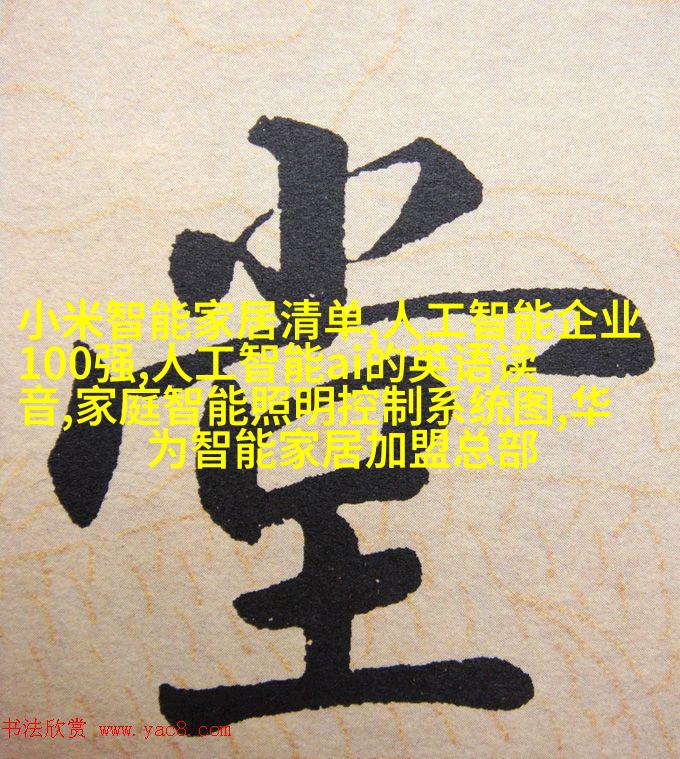 堂
小米智能家居清单,人工智能企业
100强,人工智能ai的英语读
音,家庭智能照明控制系统图,华
为智能家居加盟总部
书法欣赏 www.yac8.com